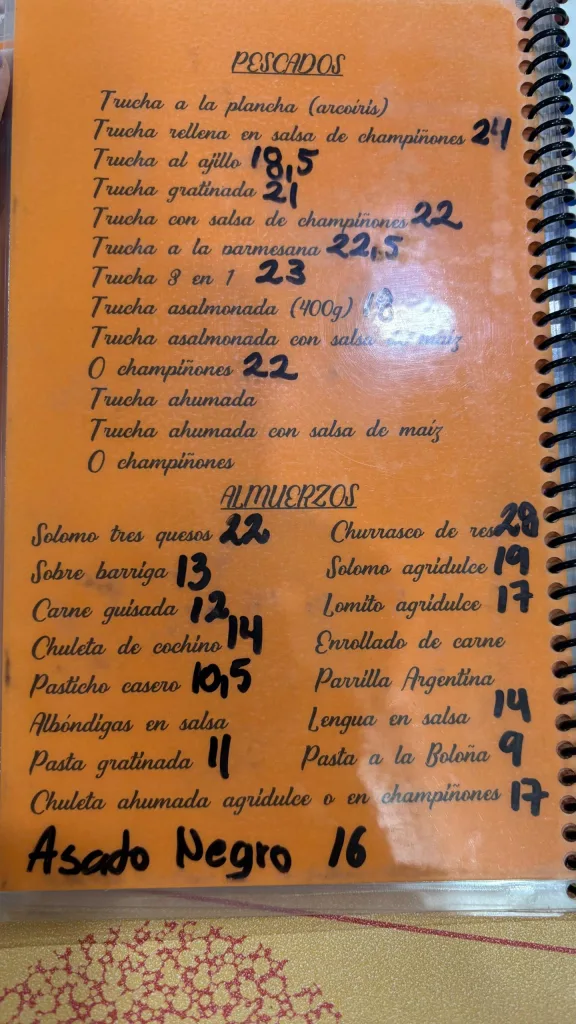 PESCADOS
Trucha a la plancha (arcoíris)
Trucha rellena en salsa de champiñones 24
Trucha al ajillo 18,5
Trucha gratinada 21
Trucha con salsa de champiñones 22
Trucha a la parmesana 22,5
Trucha 3 en 1 23
Trucha asalmonada (400g) 18
Trucha asalmonada con salsa de maíz
O champiñones 22
Trucha ahumada
Trucha ahumada con salsa de maíz
O champiñones
ALMUERZOS
Solomo tres quesos 22 Churrasco de res 28
Sobre barriga 13 Solomo agridulce 19
Carne guisada 12 Lomito agridulce 17
Chuleta de cochino 14 Enrollado de carne
Pasticho casero 10,5 Parrilla Argentina
Albóndigas en salsa Lengua en salsa 14
Pasta gratinada 11 Pasta a la Boloña 9
Chuleta ahumada agridulce o en champiñones 17
Asado Negro 16